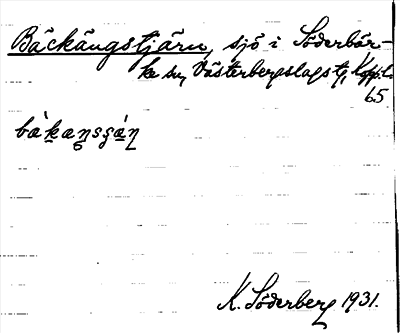 Bäckängstjärn, sjö i Söderbär-
ke sn, Västerbergslags tg, Kppbl.
65
K. Söderberg 1931.